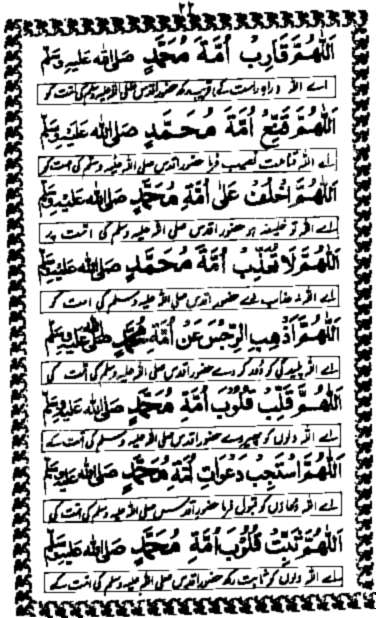 ٢٢
اَللّٰهُمَّ قَارِبْ اُمَّةَ مُحَمَّدٍ صَلَّى اللهُ عَلَيْهِ وَسَلَّمَ
اے اللہ راہ راست کے قریب کر حضور اقدس صلی اللہ علیہ وسلم کی امت کو
اَللّٰهُمَّ قَنِّعْ اُمَّةَ مُحَمَّدٍ صَلَّى اللهُ عَلَيْهِ وَسَلَّمَ
اے اللہ قناعت نصیب فرما حضور اقدس صلی اللہ علیہ وسلم کی امت کو
اَللّٰهُمَّ اخْلُفْ عَلٰى اُمَّةِ مُحَمَّدٍ صَلَّى اللهُ عَلَيْهِ وَسَلَّمَ
اے اللہ تو خلیفہ ہو حضور اقدس صلی اللہ علیہ وسلم کی امت پر
اَللّٰهُمَّ لَا تُعَذِّبْ اُمَّةَ مُحَمَّدٍ صَلَّى اللهُ عَلَيْهِ وَسَلَّمَ
اے اللہ نہ عذاب دے حضور اقدس صلی اللہ علیہ وسلم کی امت کو
اَللّٰهُمَّ اَذْهِبِ الرِّجْسَ عَنْ اُمَّةِ مُحَمَّدٍ صَلَّى اللهُ عَلَيْهِ وَسَلَّمَ
اے اللہ پلیدگی کو دور کر دے حضور اقدس صلی اللہ علیہ وسلم کی امت کی
اَللّٰهُمَّ قَلِّبْ قُلُوْبَ اُمَّةِ مُحَمَّدٍ صَلَّى اللهُ عَلَيْهِ وَسَلَّمَ
اے اللہ دلوں کو پھیر دے حضور اقدس صلی اللہ علیہ وسلم کی امت کے
اَللّٰهُمَّ اسْتَجِبْ دَعَوَاتِ اُمَّةِ مُحَمَّدٍ صَلَّى اللهُ عَلَيْهِ وَسَلَّمَ
اے اللہ دعاؤں کو قبول فرما حضور اقدس صلی اللہ علیہ وسلم کی امت کی
اَللّٰهُمَّ ثَبِّتْ قُلُوْبَ اُمَّةِ مُحَمَّدٍ صَلَّى اللهُ عَلَيْهِ وَسَلَّمَ
اے اللہ دلوں کو ثابت رکھ حضور اقدس صلی اللہ علیہ وسلم کی امت کے